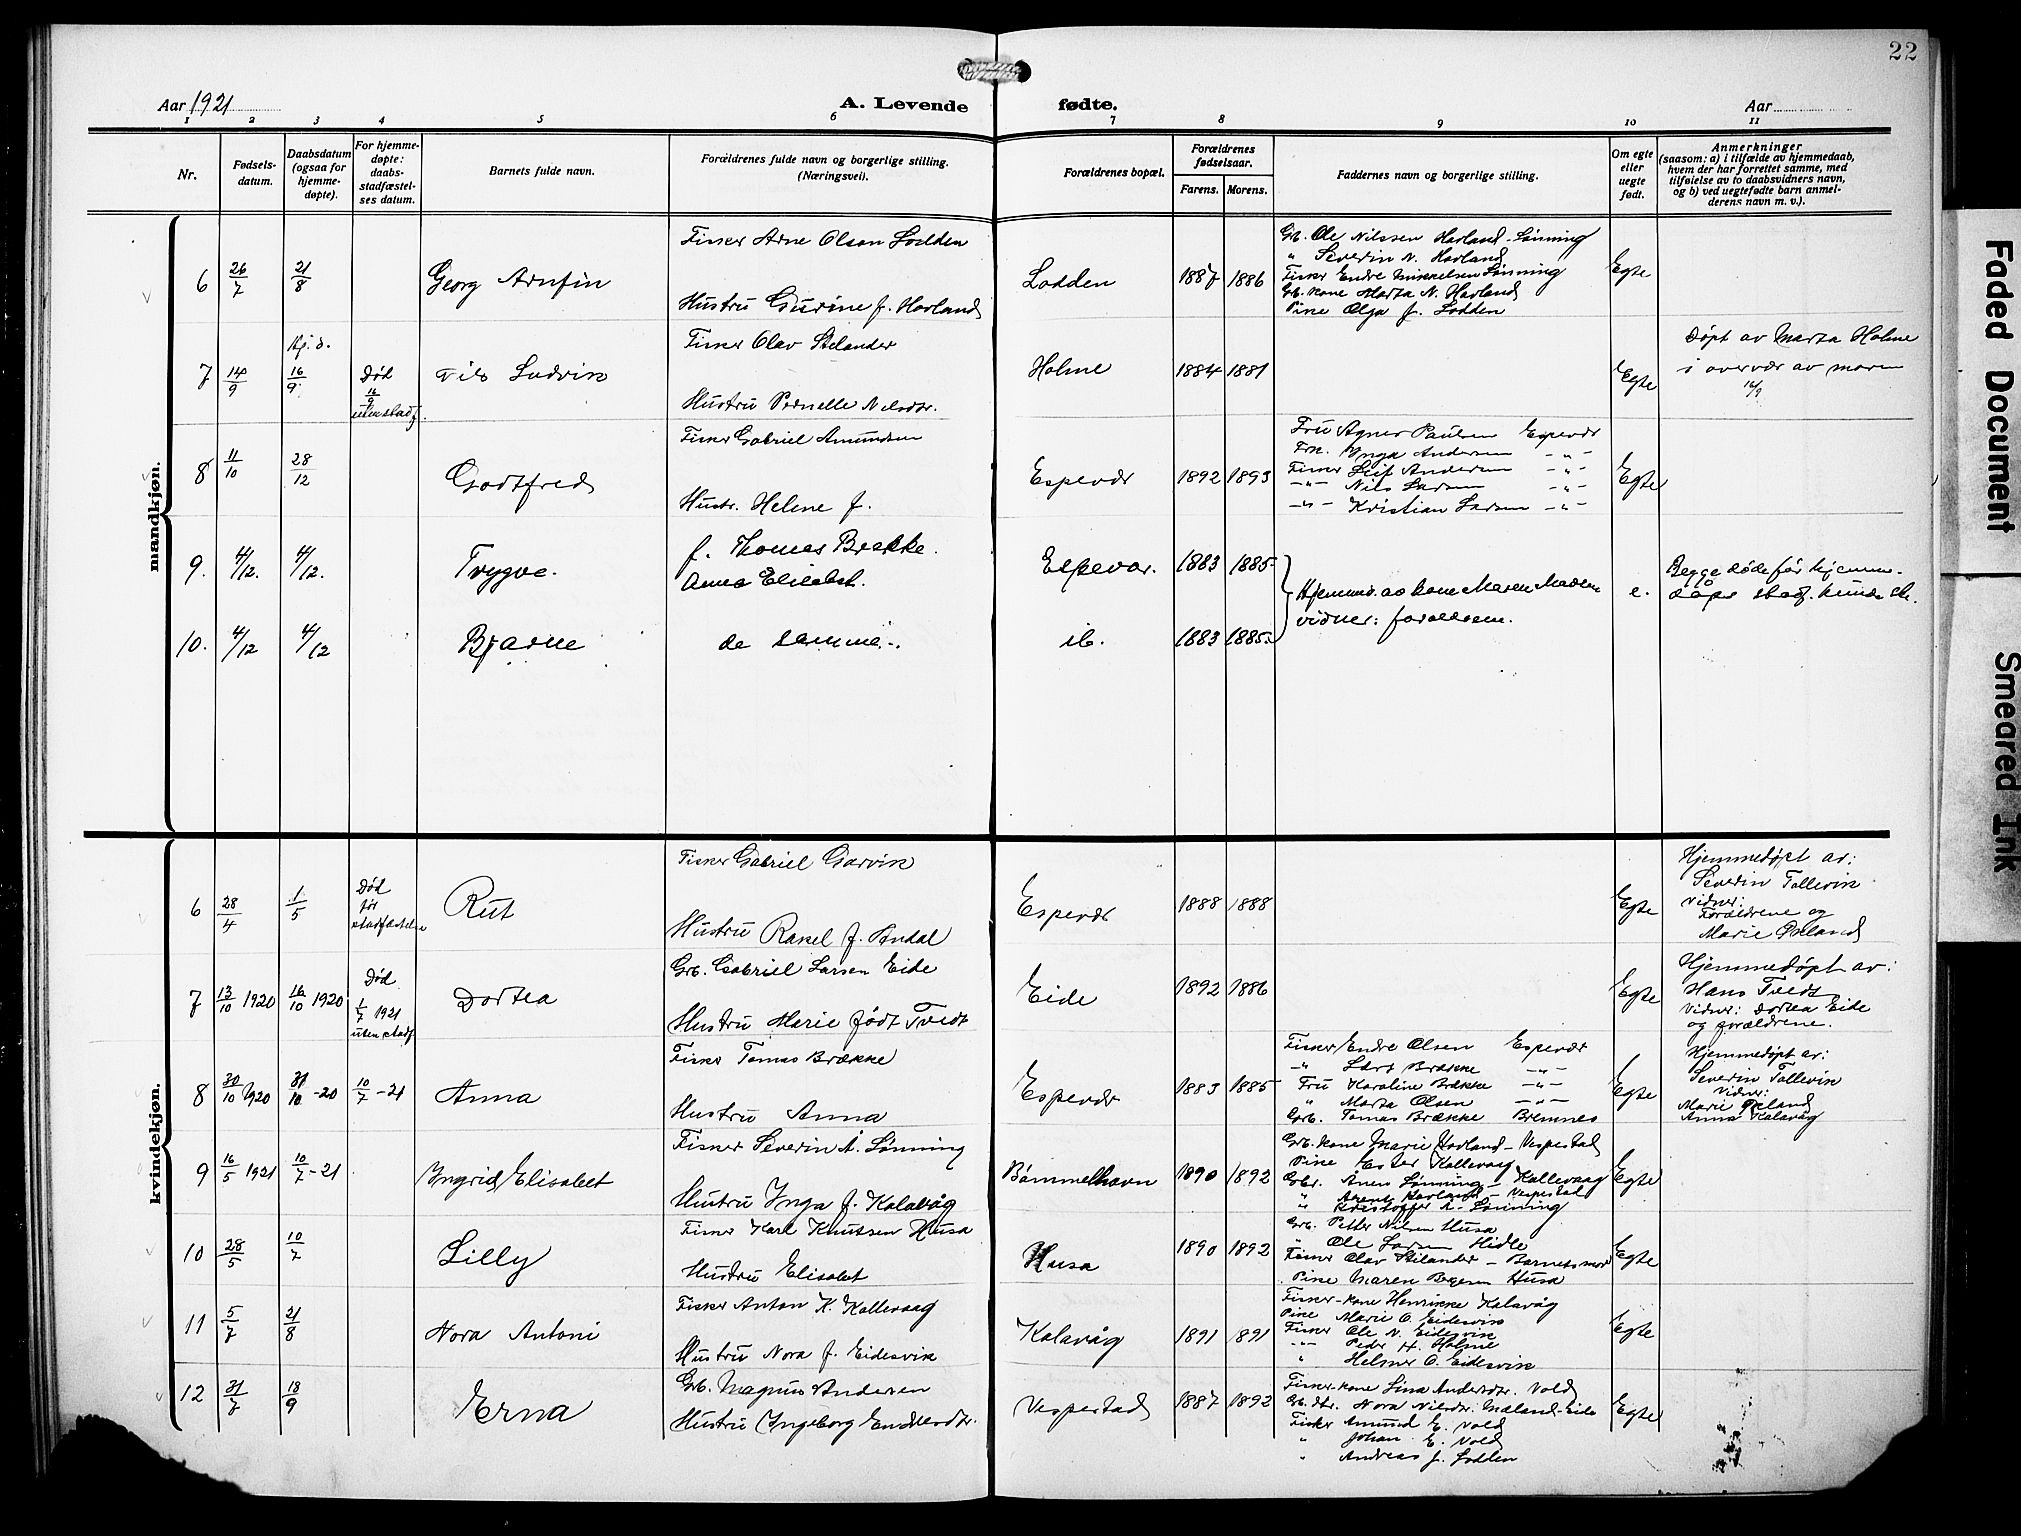 22
Aar 1921
A. Levende fødte.
Aar
1 2 3 4 5 6 7 8 9 10 11
Nr.
Fødsels-
datum.
Daabsdatum
(ogsaa for
hjemme-
døpte).
For hjemme-
døpte:
daabs-
stadfæstel-
ses datum.
Barnets fulde navn.
Forældrenes fulde navn og borgerlige stilling.
(Næringsvei).
Forældrenes bopæl.
Forældrenes
fødselsaar.
Farens. Morens.
Faddernes navn og borgerlige stilling.
Om egte
eller
uegte
født.
Anmerkninger
(saasom: a) i tilfælde av hjemmedaab,
hvem der har forrettet samme, med
tilføielse av to daabsvidners navn,
og b) ved uegtefødte barn anmel-
derens navn m. v.).
mandkjøn.
6 26/7 21/8 Georg Arnfin
Fisker Arne Olson Lodden
Hustru Gurine f. Hovland
Lodden 1887 1886
Grb. Ole Nilssen Hovland - Lønning
" Severin N. Hovland
Fisker Endre Mikkelsen Lønning
Grb. kone Marta N. Hovland
Pike Olga J. Lodden
Egte
7 14/9 Hj. d. 16/9
Død
16/9
uten stadf.
Nils Ludvik
Fisker Olav Stelander
Hustru Pernelle Nilsdtr.
Holme 1884 1881
Egte
Døpt av Marta Holme
i overvær av moren
16/9
8 11/10 28/12 Godtfred
Fisker Gabriel Amundsen
Hustr. Helene f.
Espevær 1892 1893
Fru Agnes Paulsen Espevær
Frk. Inga Andersen -"-
Fisker Leif Andersen -"-
-"- Nils Larsen -"-
-"- Kristian Larsen -"-
Egte
9. 4/12. 4/12. Trygve.
f. Thomas Brekke.
Anna Elisabet.
Espevær. 1883 1885
Hjemmed. av kone Maren Madsen
vidner: foreldrene.
e.
Begge døde før hjemme-
dåps stadf. kunde ske.
10. 4/12 4/12 Bjarne
de samme.
ib. 1883 1885
kvindekjøn.
6 28/4 1/5
Død
før
stadfæstelse
Rut
Fisker Gabriel Garvik
Hustru Rakel f.
Espevær 1888 1888
Egte
Hjemmedøpt av:
Severin Tollevik
Vidner:
Forældrene og
Marie Økland
7 13/10 1920 16/10 1920
Død
1/7 1921
uten stadf
Dortea
Grb. Gabriel Larsen Eide
Hustru Marie født Tvedt
Eide 1892 1886
Egte
Hjemmedøpt av:
Hans Tvedt
Vidner: Dortea Eide
og forældrene.
8 30/10 1920 31/10 -20 10/7 -21 Anna
Fisker Tomas Brække
Hustru Anna
Espevær 1883 1885
Fisker Endre Olsen Espevær
-"- Lars Brække -"-
Fru Karoline Brække -"-
" Marta Olsen -"-
Grb. Tomas Brække Bremnes
Egte
Hjemmedøpt av:
Severin Tollevik
Vidner:
Marie Økland
Anna Kalavåg
9 16/5 1921 10/7 -21 Ingrid Elisabet
Fisker Severin A. Lønning
Hustru Inga f. Kalavåg
Bømmelhavn 1890 1892
Grb. kone Marie Hovland - Vespestad
Pike Ester Kallevaag
Grbr. Anen Lønning - Kallevaag
" Hovland - Vespestad
" Kristoffer A. Lønning
Egte
10 28/5 10/7 Lilly
Fisker Karl Knutsen Husa
Hustru Elisabet
Husa 1890 1892
Grb. Petter Nilsen Husa
" Ole Larsen Hidle
Fisker Olav Stilander - Barnets mor
Pike Maren Husa
Egte
11 5/7 21/8 Nora Antoni
Fisker Anton K. Kallevaag
Hustru Nora f. Eidesvik
Kalavåg 1891 1891
Fisker-kone Henrikke Kalavåg
Pike Marie O. Eidesvik
Fisker Ole N. Eidesvik
-"- Peder H. Holme
" Helmer O. Eidesvik
Egte
12 31/7 18/9 Erna
Grb. Magnus Andersen
Hustru Ingeborg Endresdtr.
Vespestad 1887 1892
Fisker-kone Lina Andersdtr. Vold
Grb. dtr. Nora Nilsdtr. Mæland - Eide
Fisker Amund E. Vold
" Johan E. Vold
" Andreas J. Lodden
Egte
Faded Document
Smeared Ink